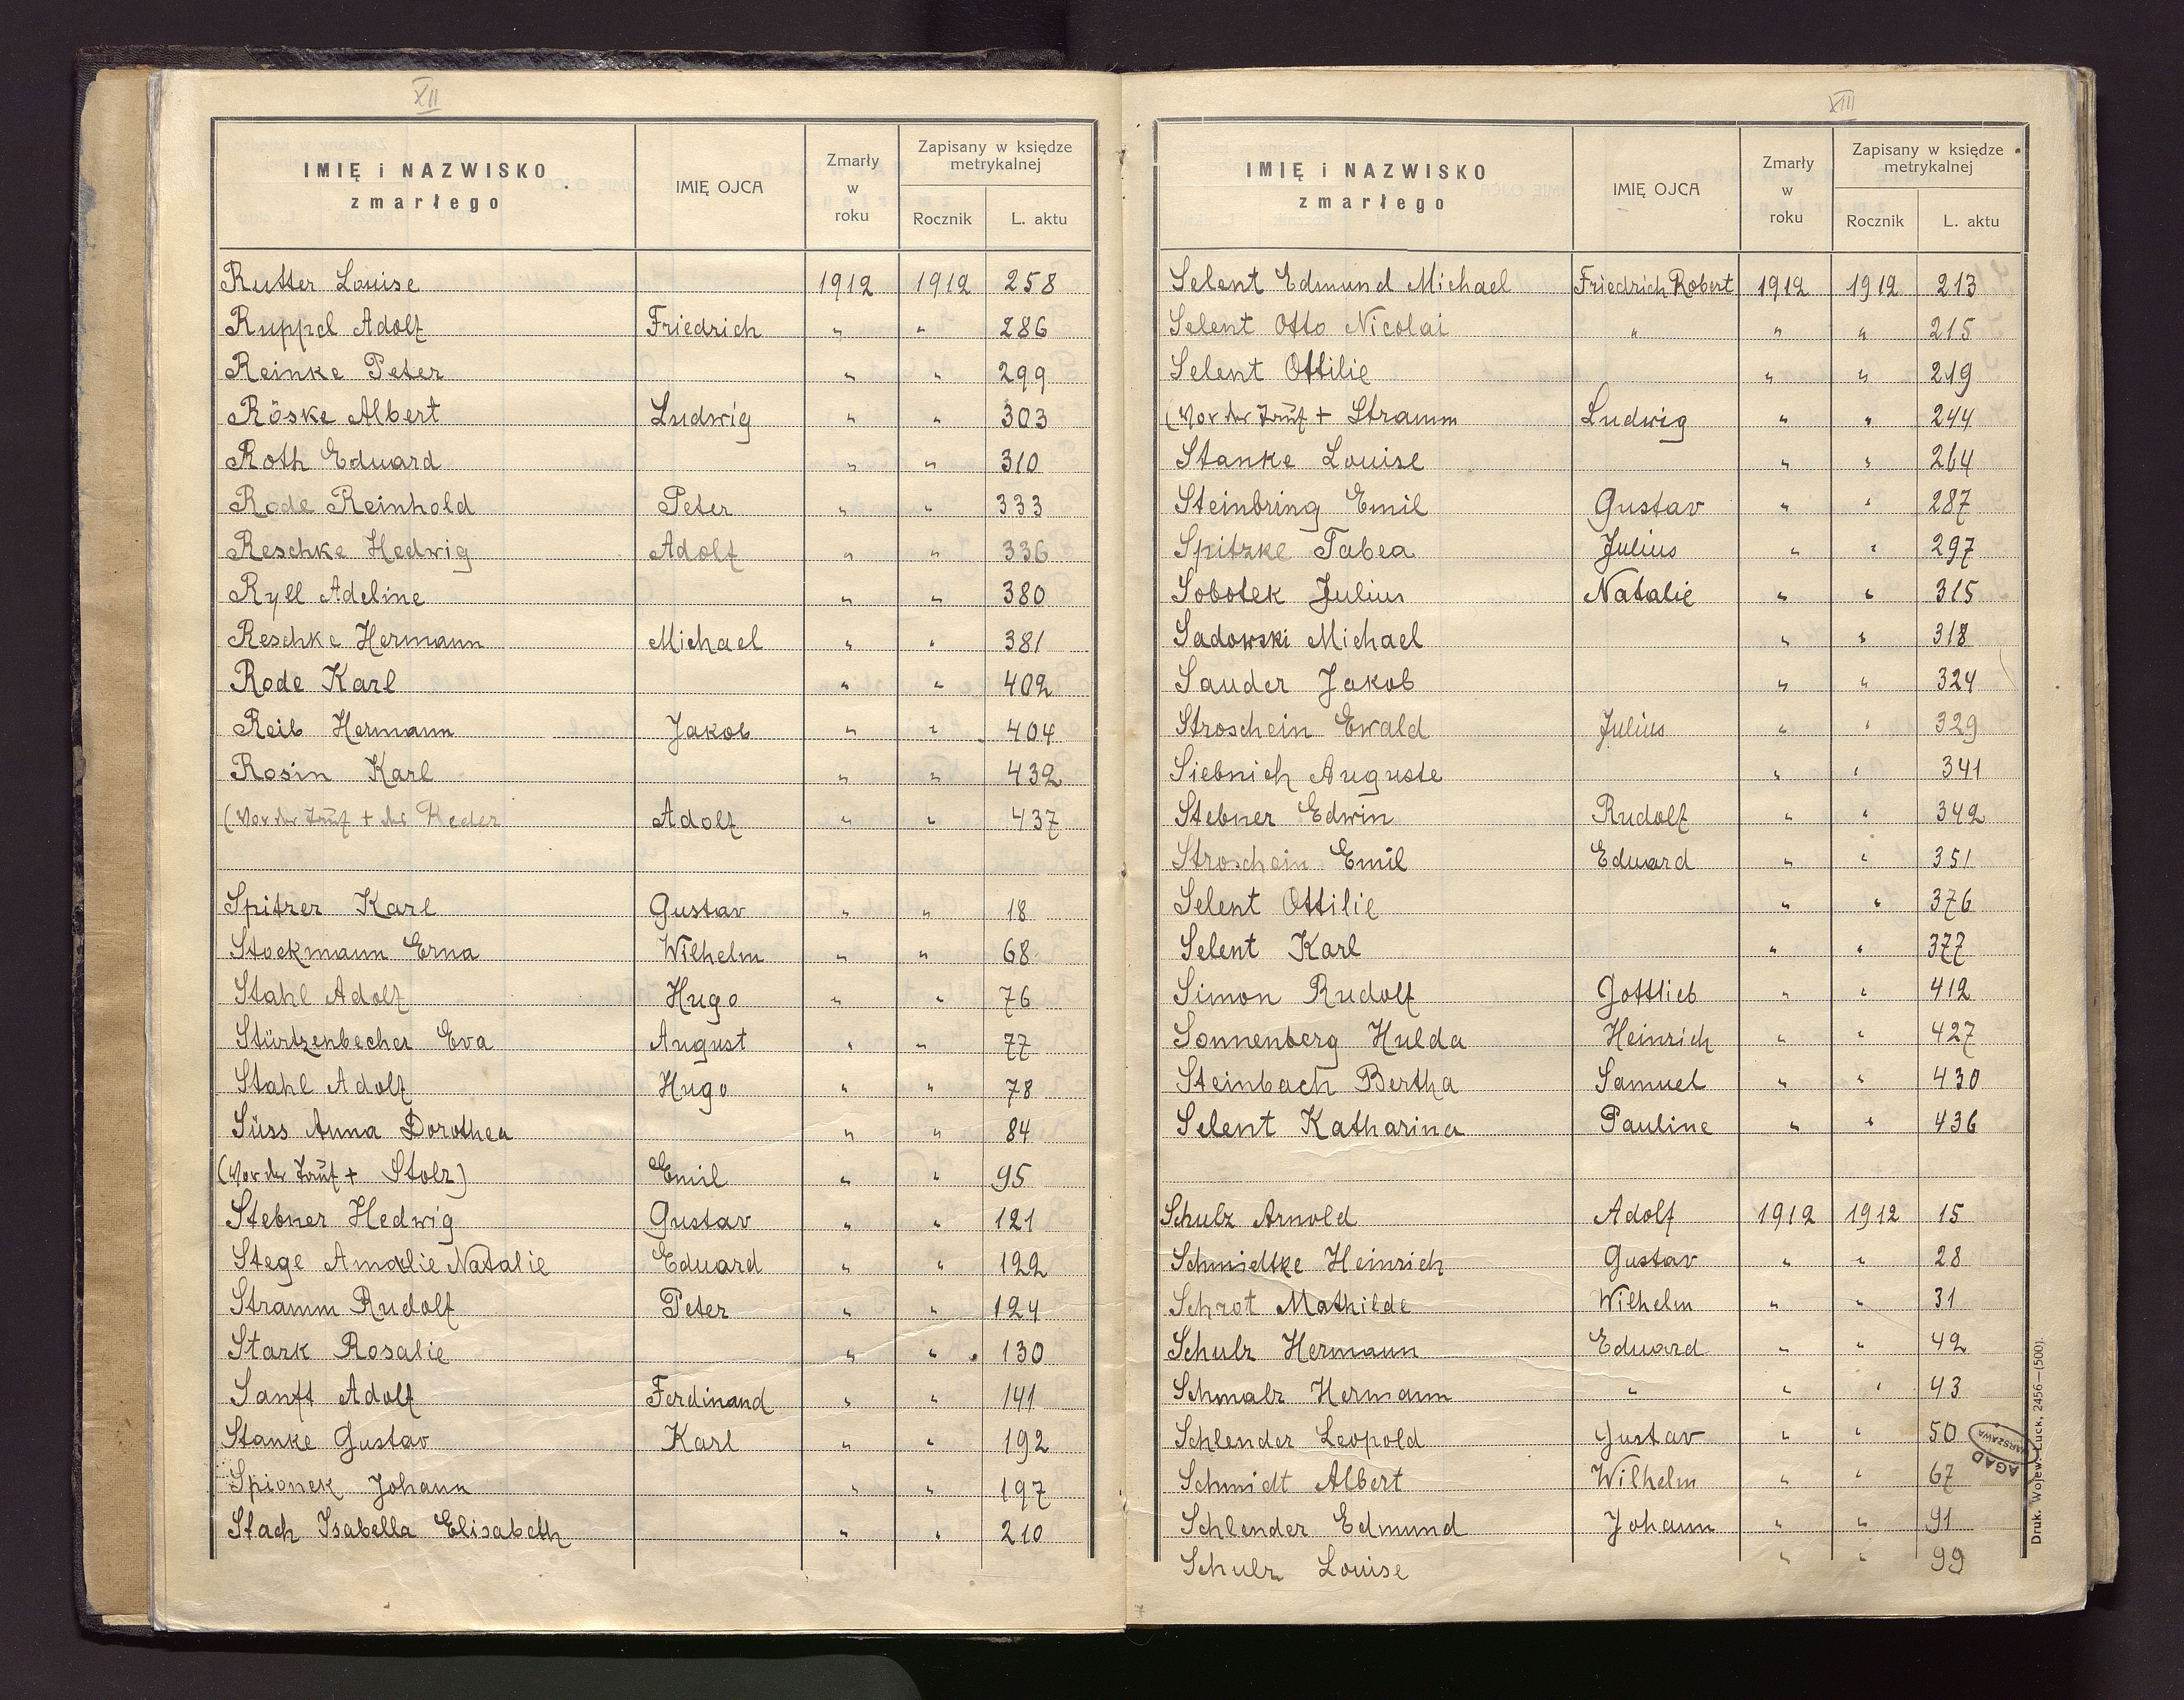 XII
IMIĘ i NAZWISKO zmarłego IMIĘ OJCA Zmarły w roku Zapisany w księdze metrykalnej Rocznik L. aktu
Rutter Louise 1912 1912 258
Ruppel Adolf Friedrich " " 286
Reinke Peter " " 299
Röske Albert Ludwig " " 303
Roth Eduard " " 310
Rode Reinhold Peter " " 333
Reschke Hedwig Adolf " " 336
Ryll Adeline " " 380
Reschke Hermann Michael " " 381
Rode Karl " " 402
Reib Hermann Jakob " " 404
Rosin Karl " " 432
(Vor der Tauf + der Reder Adolf " " 437
Spitzer Karl Gustav " " 18
Stockmann Erna Wilhelm " " 68
Stahl Adolf Hugo " " 76
Stürtzenbecher Eva August " " 77
Stahl Adolf Hugo " " 78
Süss Anna Dorothea " " 84
(Vor der Tauf + Stolz) Emil " " 95
Stebner Hedwig Gustav " " 121
Stege Amalie Natalie Eduard " " 122
Stramm Rudolf Peter " " 124
Stark Rosalie " " 130
Sanft Adolf Ferdinand " " 141
Stanke Gustav Karl " " 192
Spionek Johann " " 197
Stach Isabella Elisabeth " " 210
XIII
IMIĘ i NAZWISKO zmarłego IMIĘ OJCA Zmarły w roku Zapisany w księdze metrykalnej Rocznik L. aktu
Selent Edmund Michael Friedrich Robert 1912 1912 213
Selent Otto Nicolai " " " 215
Selent Ottilie " " 219
(Vor der Tauf + Stramm Ludwig " " 244
Stanke Louise " " 264
Steinbring Emil Gustav " " 287
Spitzke Tabea Julius " " 297
Sobotek Julius Natalie " " 315
Sadowski Michael " " 318
Sauder Jakob " " 324
Stroschein Ewald Julius " " 329
Siebnich Auguste " " 341
Stebner Edwin Rudolf " " 342
Stroschein Emil Eduard " " 351
Selent Ottilie " " 376
Selent Karl " " 377
Simon Rudolf Gottlieb " " 412
Sonnenberg Hulda Heinrich " " 427
Steinbach Bertha Samuel " " 430
Selent Katharina Pauline " " 436
Schulz Arnold Adolf 1912 1912 15
Schmidtke Heinrich Gustav " " 28
Schrot Mathilde Wilhelm " " 31
Schulz Hermann Eduard " " 42
Schmalz Hermann " " " 43
Schlender Leopold Gustav " " 50
Schmidt Albert Wilhelm " " 67
Schlender Edmund Johann " " 91
Schulz Louise " " 99
AGAD WARSZAWA
Druk. Wojew. Łuck, 2456—(500).